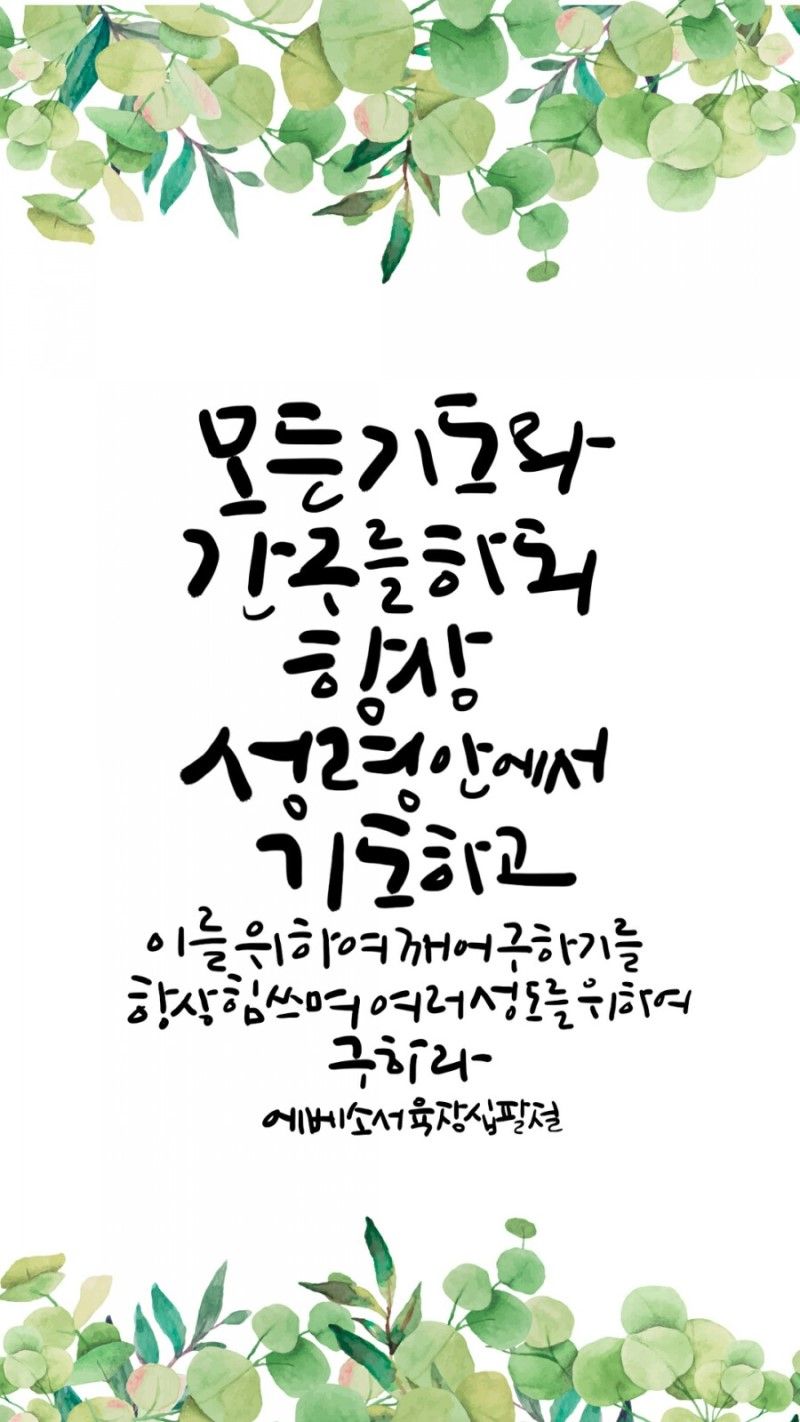 모든기도와
간구를하되
항상
성령안에서
기도하고
이를위하여깨어구하기를
항상힘쓰며 여러성도를위하여
구하라
에베소서육장십팔절